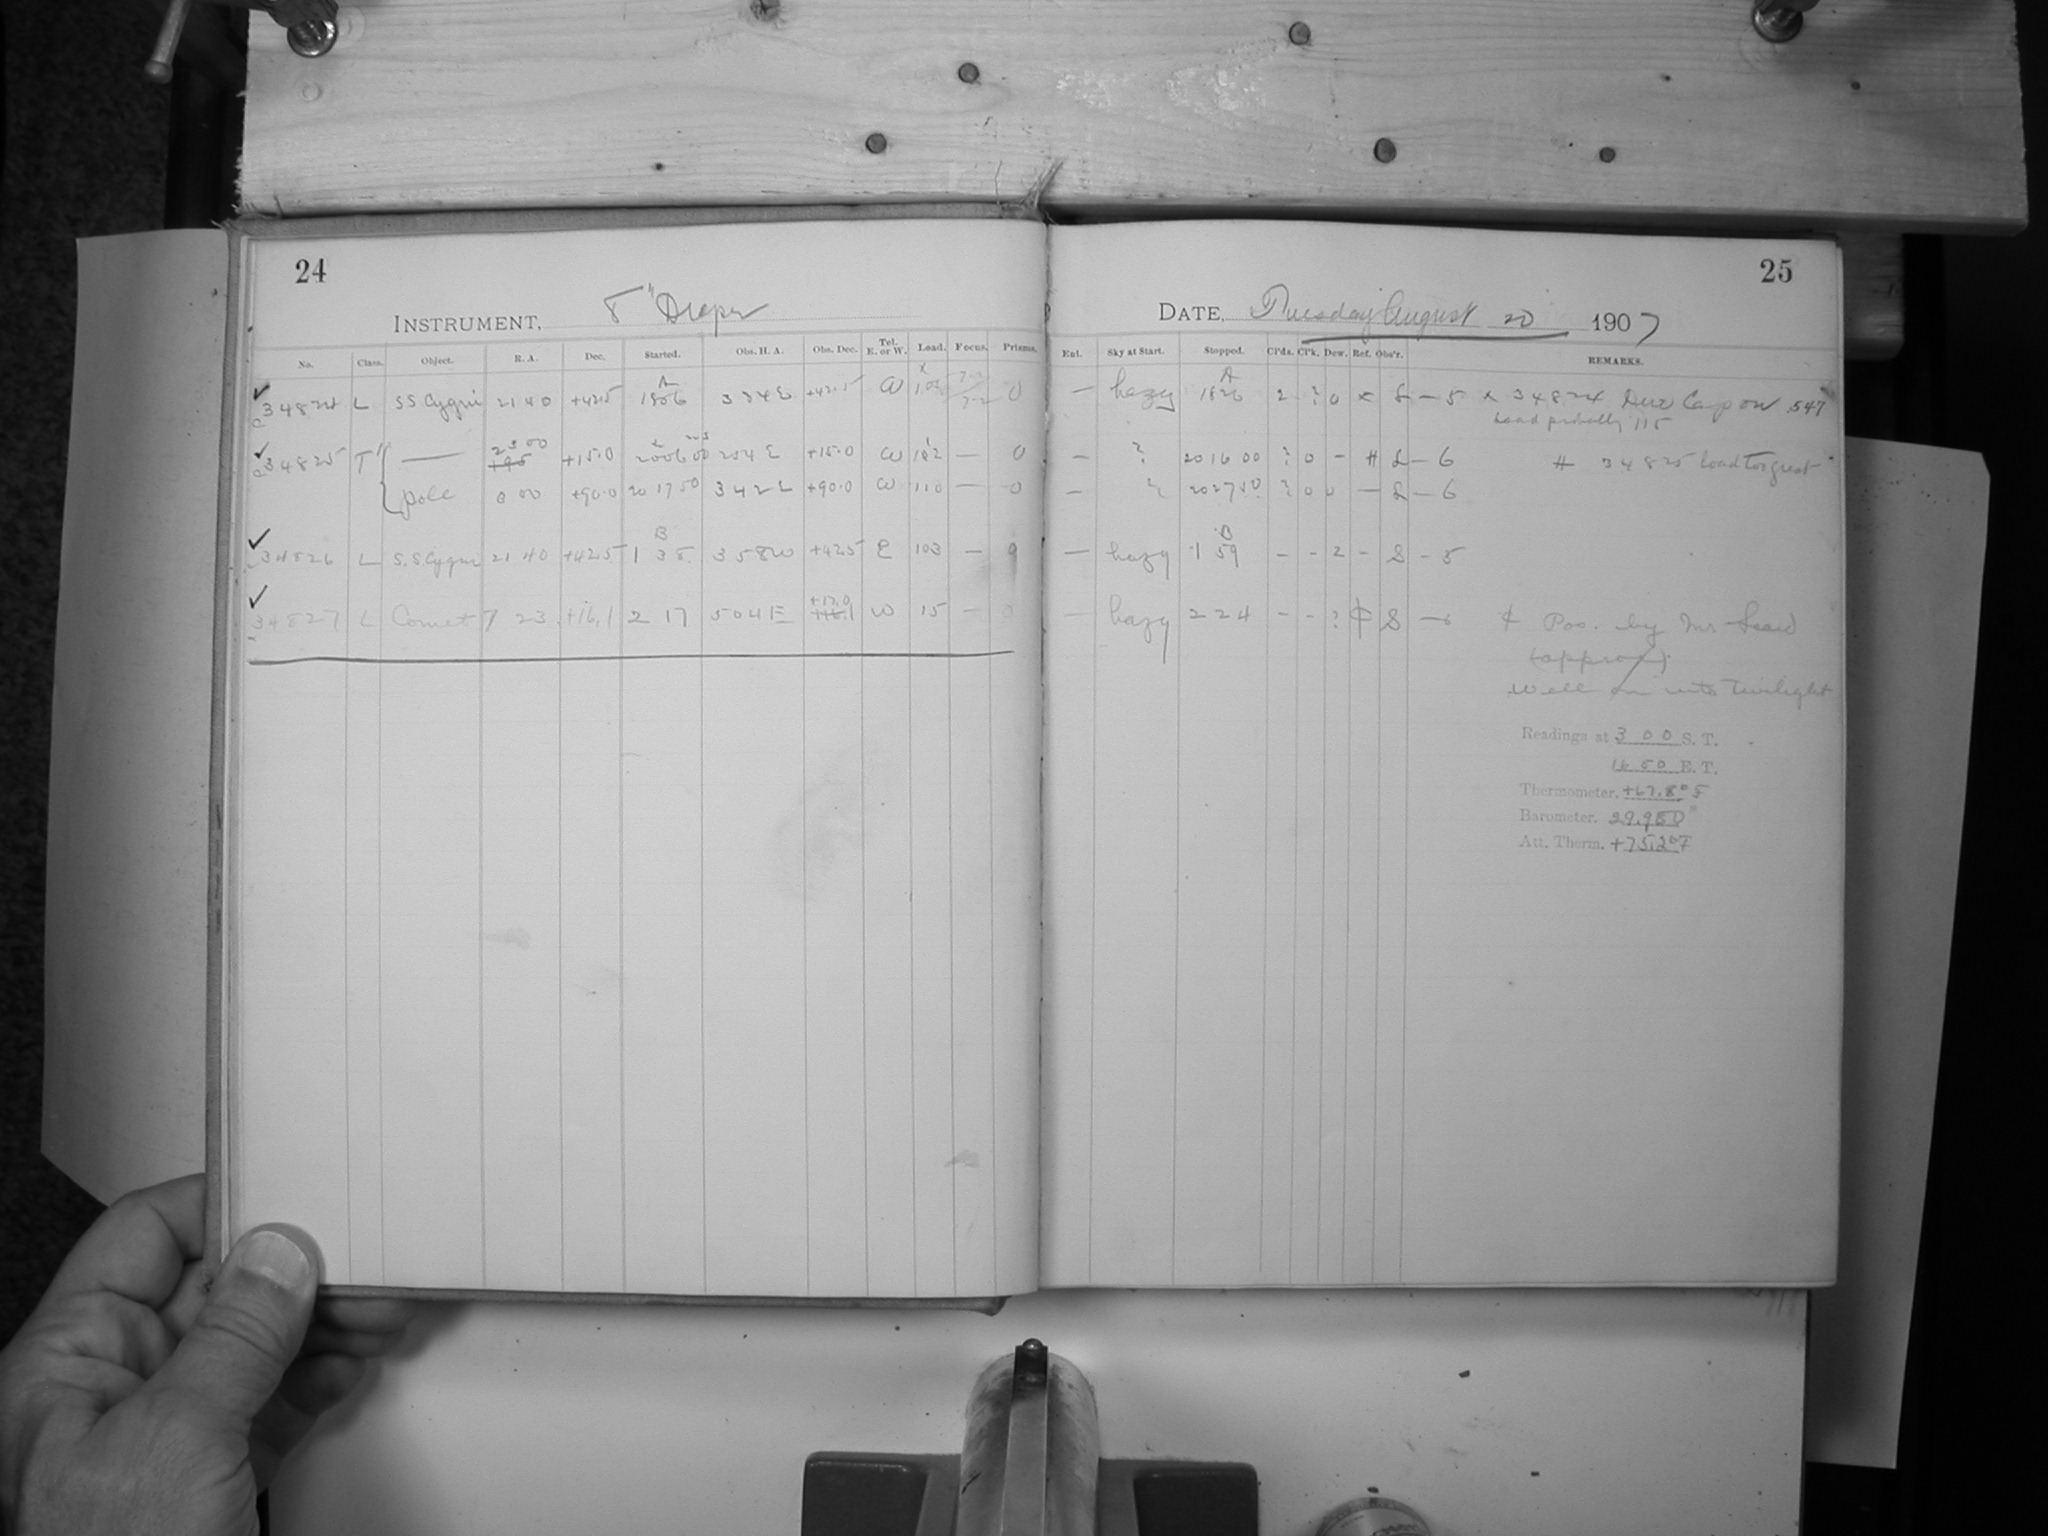 24
25
INSTRUMENT, 8" Draper
DATE, Tuesday August 20 1907
No. Class. Object. R. A. Dec. Started. Obs. H. A. Obs. Dec. Tel. E. or W. Load. Focus. Prisms.
Ent. Sky at Start. Stopped. Cl'ds. Cl'k. Dew. Ref. Obs'r. REMARKS.
A
A
34824 L SS Cygni 21 40 +42.5 1806 3 34 E +42.5 W 0
— hazy 1826 2 ? 0 × S — 5 × 34824 Dew Cap on .547
Load probably 115
34825 T — 23 00 +15.0 20 06 00 2 54 E +15.0 W — 0
— ? 20 16 00 ? 0 — # S — 6 # 34825 Load too great
pole 0 00 +90.0 20 17 50 3 42 E +90.0 W 110 — 0
— 20 27 50 ? 0 0 — S — 6
B
B
34826 L S.S Cygni 21 40 +42.5 1 38 3 58 W +42.5 E 103 — 0
— hazy 1 59 — — 2 — S — 5
34827 L Comet 7 23 +16.1 2 17 5 04 E +17.0 W 15 — 0
— hazy 2 24 — — ? ¢ S — 6 ¢ Pos. by Mr
(approx).
Well on into twilight
Readings at 3 00 S. T.
16 50 E. T.
Thermometer. +67.8° F
Barometer. 29.980"
Att. Therm. +75.2° F